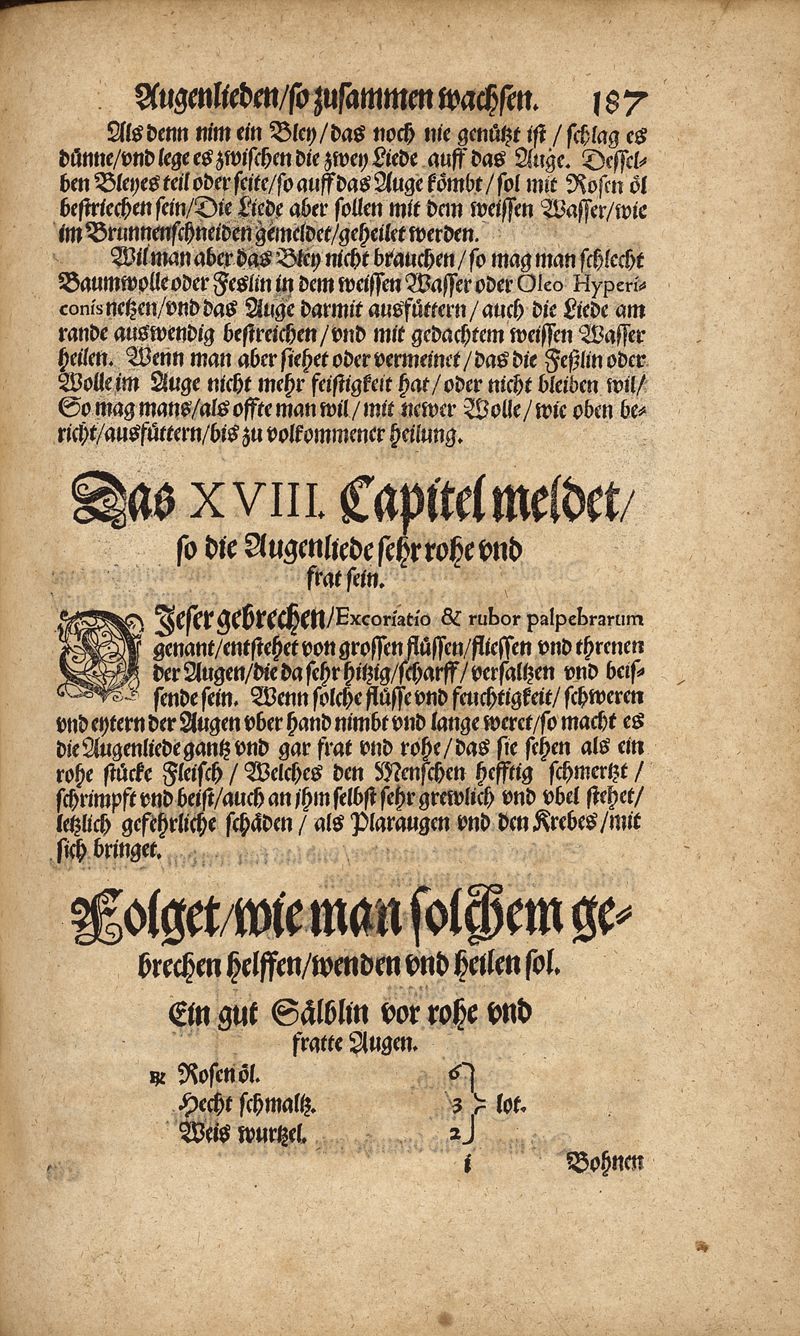 Augenlieden/so zusammen wachsen. 187
Als denn nim ein Bley/das noch nie genützt ist/schlag es
dünne/vnd lege es zwischen die zwey Liede auff das Auge. Dessel⸗
ben Bleyes teil oder seite/so auff das Auge kömbt/sol mit Rosen öl
bestriechen sein/Die Liede aber sollen mit dem weissen Wasser/wie
im Brunnenschneiden gemeldet/geheilet werden.
Wil man aber das Bley nicht brauchen/so mag man schlecht
Baumwolle oder Feslin in dem weissen Wasser oder Oleo Hyperi⸗
conis netzen/vnd das Auge darmit ausfüttern/auch die Liede am
rande auswendig bestreichen/vnd mit gedachtem weissen Wasser
heilen. Wenn man aber siehet oder vermeinet/das die Feßlin oder
Wolle im Auge nicht mehr feistigkeit hat/oder nicht bleiben wil/
So mag mans/als offte man wil/mit newer Wolle/wie oben be⸗
richt/ausfüttern/bis zu volkommener heilung.
Das XVIII. Capitel meldet/
so die Augenliede sehr rohe vnd
frat sein.
DJeser gebrechen/Excoriatio & rubor palpebrarum
genant/entstehet von grossen flüssen/fliessen vnd threnen
der Augen/die da sehr hitzig/scharff/versaltzen vnd beis⸗
sende sein. Wenn solche flüsse vnd feuchtigkeit/schweren
vnd eytern der Augen vber hand nimbt vnd lange weret/so macht es
die Augenliede gantz vnd gar frat vnd rohe/das sie sehen als ein
rohe stücke Fleisch/Welches den Menschen hefftig schmertzt/
schrimpft vnd beist/auch an jhm selbst sehr grewlich vnd vbel stehet/
letzlich gefehrliche schäden/als Plaraugen vnd den Krebes/mit
sich bringet.
Folget/wie man solchem ge⸗
brechen helffen/wenden vnd heilen sol.
Ein gut Sälblin vor rohe vnd
fratte Augen.
℞ Rosen öl. 6
Hecht schmaltz. 3 lot.
Weis wurtzel. 2
i Bohnen